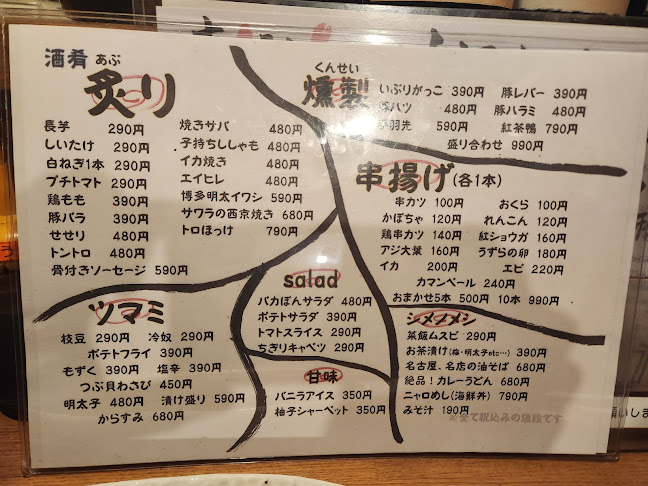 酒肴 あぶ
炙り
長芋 290円
しいたけ 290円
白ねぎ1本 290円
プチトマト 290円
鶏もも 390円
豚バラ 390円
せせり 480円
トントロ 480円
骨付きソーセージ 590円
焼きサバ 480円
子持ちししゃも 480円
イカ焼き 480円
エイヒレ 480円
博多明太イワシ 590円
サワラの西京焼き 680円
トロほっけ 790円
くんせい
燻製
いぶりがっこ 390円 豚レバー 390円
豚ハツ 480円 豚ハラミ 480円
手羽先 590円 紅茶鴨 790円
盛り合わせ 990円
串揚げ(各1本)
串カツ 100円 おくら 100円
かぼちゃ 120円 れんこん 120円
鶏串カツ 140円 紅ショウガ 160円
アジ大葉 160円 うずらの卵 180円
イカ 200円 エビ 220円
カマンベール 240円
おまかせ5本 500円 10本 990円
ツマミ
枝豆 290円 冷奴 290円
ポテトフライ 390円
もずく 390円 塩辛 390円
つぶ貝わさび 450円
明太子 480円 漬け盛り 590円
からすみ 680円
salad
バカぼんサラダ 480円
ポテトサラダ 390円
トマトスライス 290円
ちぎりキャベツ 290円
甘味
バニラアイス 350円
柚子シャーベット 350円
シメノメシ
菜飯ムスビ 290円
お茶漬け(梅・明太子etc…) 390円
名古屋、名店の油そば 680円
絶品!カレーうどん 680円
ニャロめし(海鮮丼) 790円
みそ汁 190円
※全て税込みの値段です
願いしま